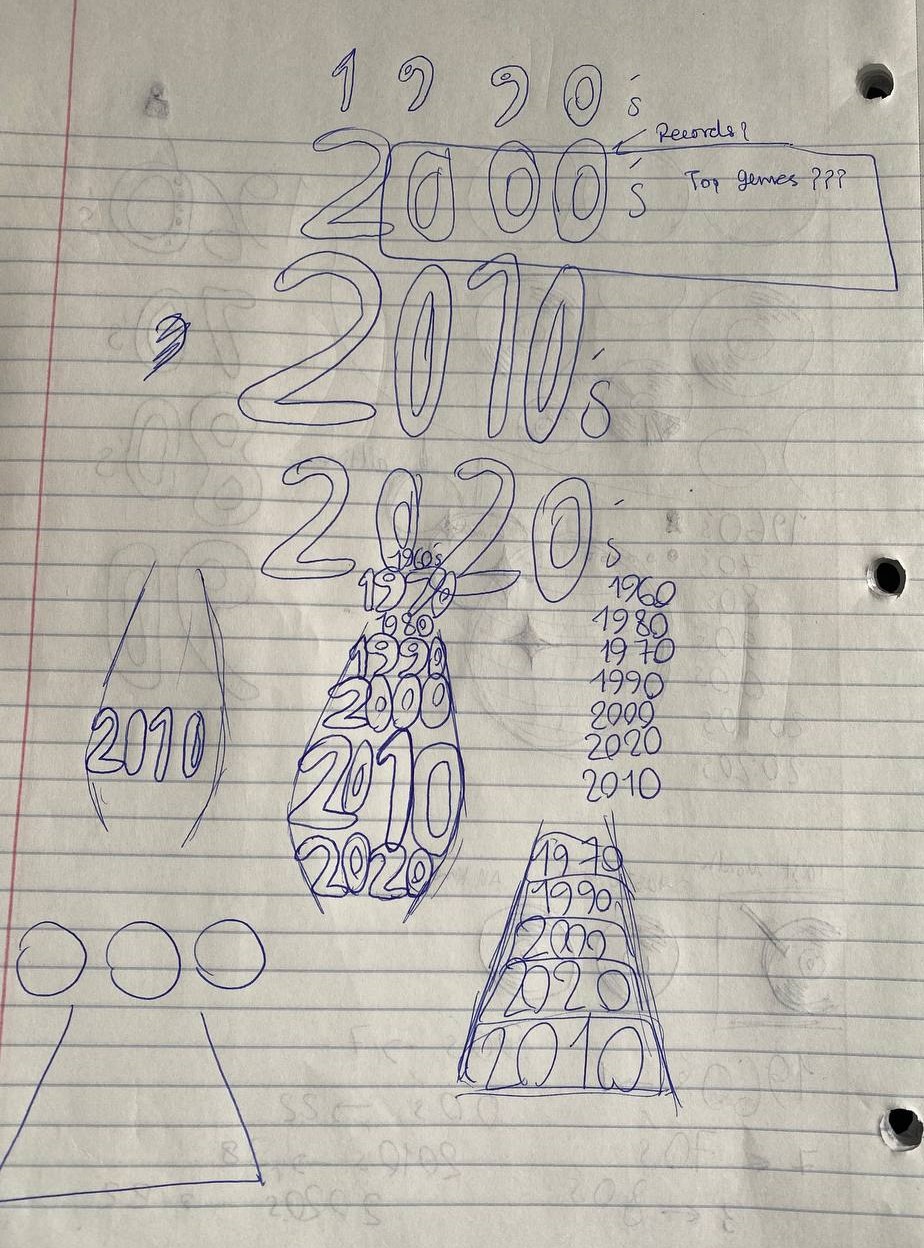 1990's
Records?
2000's
Top genres ???
2010's
2020's
1960's
1970
1980
1990
2000
2010
2020
2010
1960
1980
1970
1990
2000
2020
2010
1970
1990
2000
2020
2010